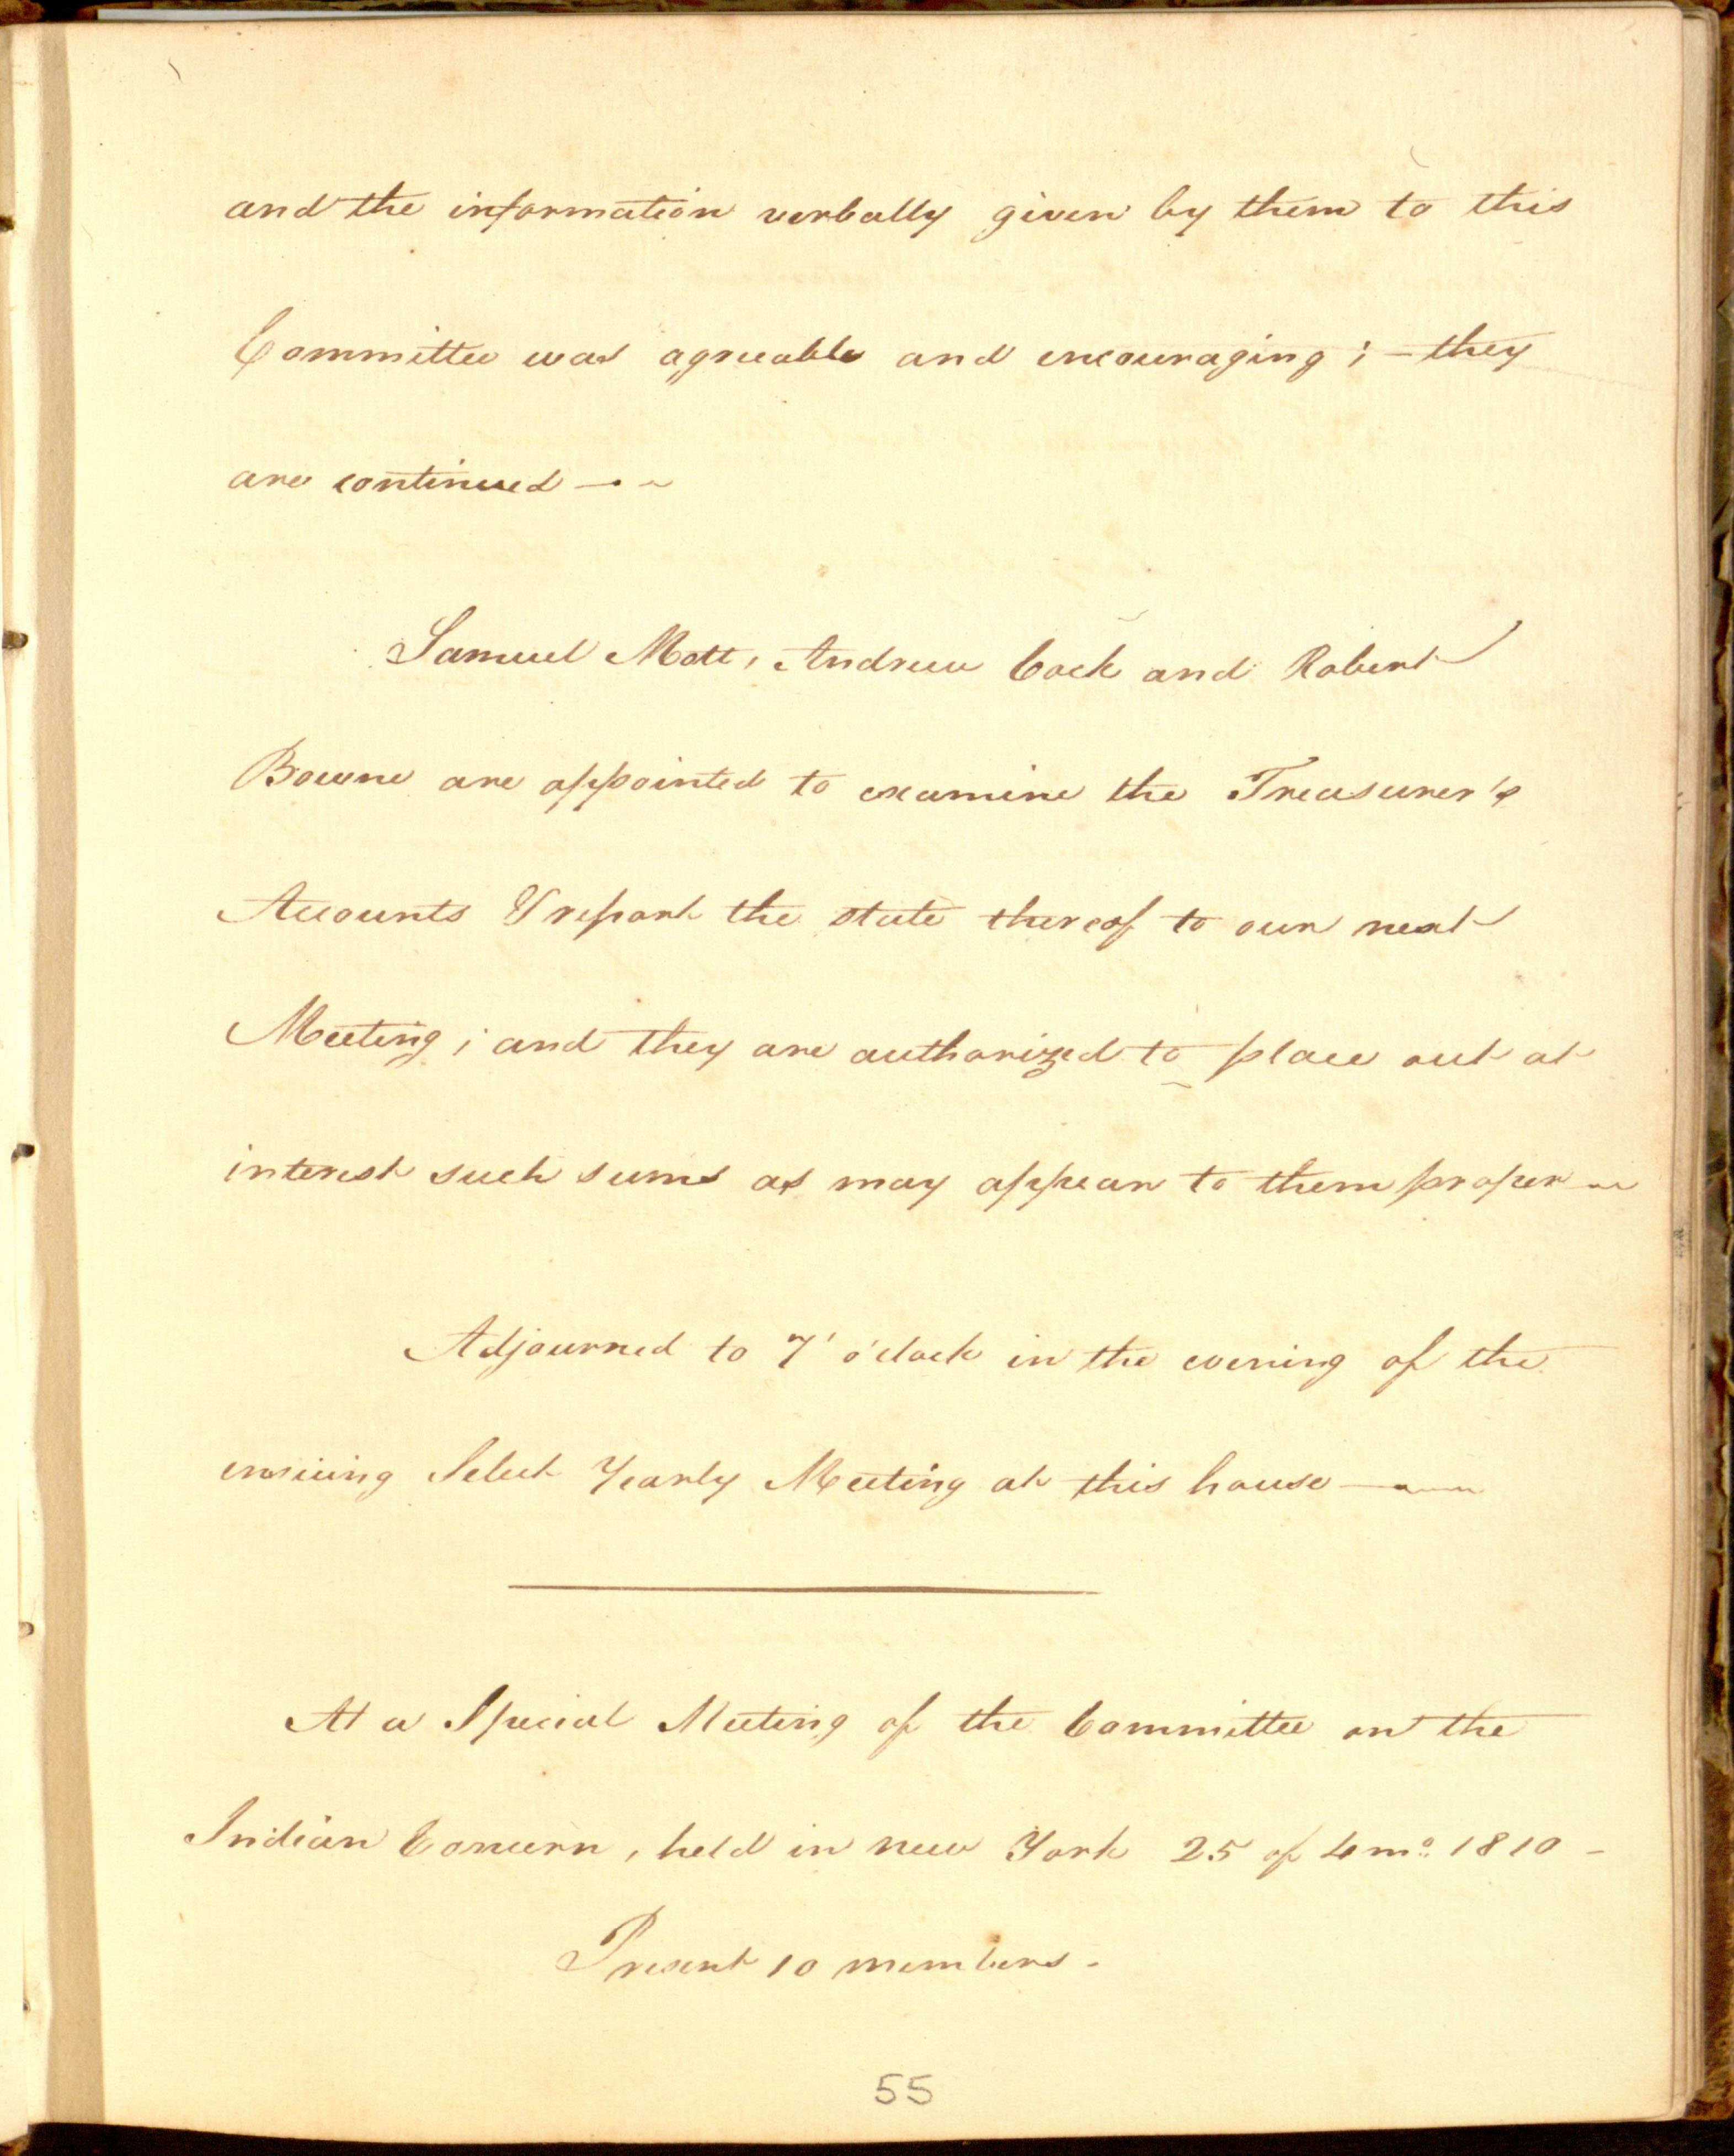 and the information verbally given by them to this
Committee was agreeable and encouraging ; – they
are continued —
Samuel Mott, Andrew Cock and Robert
Bowne are appointed to examine the Treasurer's
Accounts & report the state thereof to our next
Meeting ; and they are authorized to place out at
interest such sums as may appear to them proper —
Adjourned to 7 o'clock in the evening of the
ensuing Select Yearly Meeting at this house —
At a Special Meeting of the Committee on the
Indian Concern, held in new York 25 of 4 mo. 1810 –
Present 10 members –
55